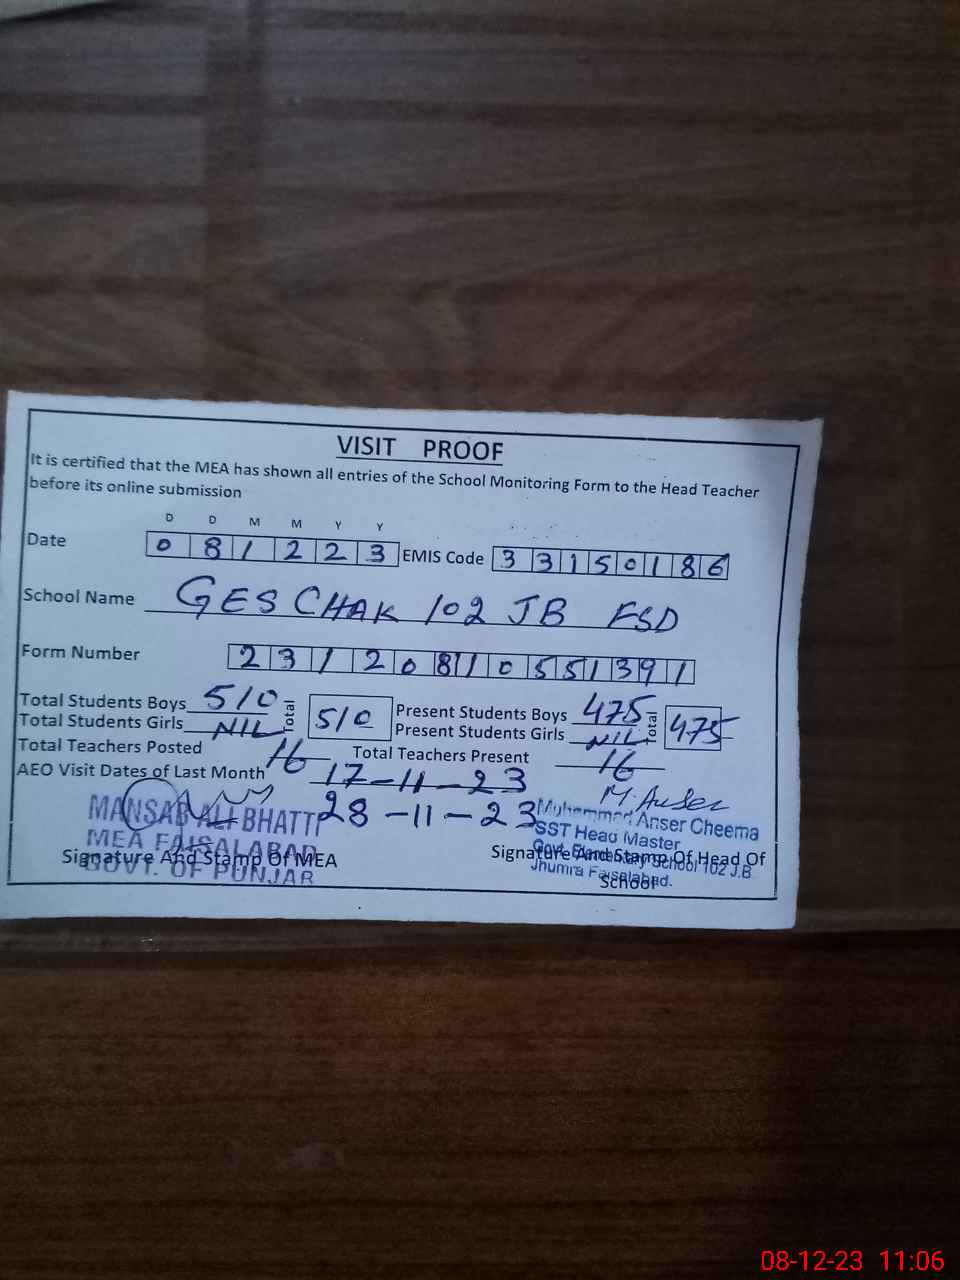 VISIT PROOF
It is certified that the MEA has shown all entries of the School Monitoring Form to the Head Teacher
before its online submission
D D M M Y Y
Date 0 8 1 2 2 3 EMIS Code 3 3 1 5 0 1 8 6
School Name GES CHAK 102 JB FSD
Form Number 2 3 1 2 0 8 1 0 5 5 1 3 9 1
Total Students Boys 510 Total 510 Present Students Boys 475 Total 475
Total Students Girls NIL Present Students Girls NIL
Total Teachers Posted 16 Total Teachers Present 16
AEO Visit Dates of Last Month 17-11-23
28-11-23
M. Anser
MANSAB ALI BHATTI
MEA FAISALABAD
GOVT. OF PUNJAB
Signature And Stamp Of MEA
Muhammad Anser Cheema
SST Head Master
Govt. Elementary School 102 J.B
Jhumra Faisalabad.
Signature And Stamp Of Head Of
School
08-12-23 11:06